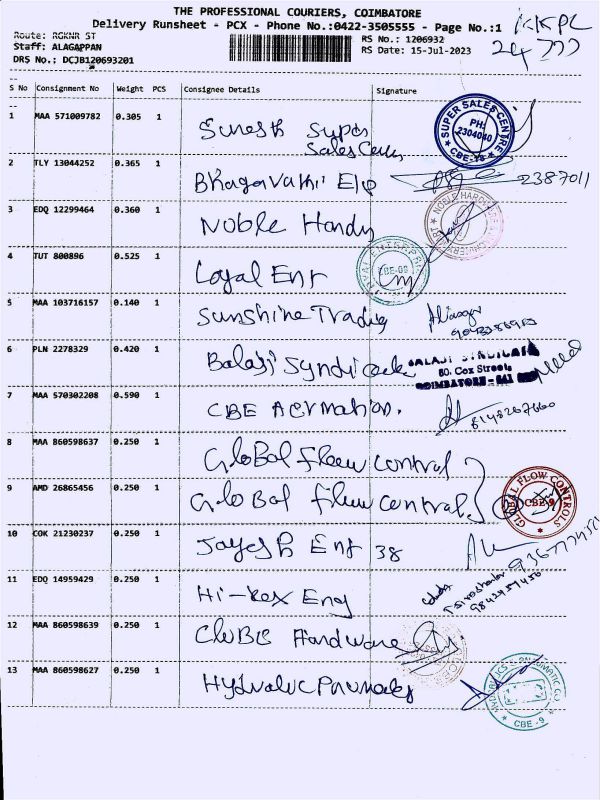 THE PROFESSIONAL COURIERS, COIMBATORE
Delivery Runsheet - PCX - Phone No.:0422-3505555 - Page No.:1
KKPL
Route: RGKNR ST
RS No.: 1206932
Staff: ALAGAPPAN
RS Date: 15-Jul-2023
DRS No.: DCJB120693201
S No Consignment No Weight PCS Consignee Details Signature
1 MAA 571009782 0.305 1 Suresh Super
Sales Centre
SUPER SALES CENTRE
PH:
2304040
CBE-18
2 TLY 13044252 0.365 1 Bhagavathi Ele 2387011
3 EDQ 12299464 0.360 1 Noble Hardw
NOBLE HARDWARE
4 TUT 800896 0.525 1 Loyal Ent
CBE-09
5 MAA 103716157 0.140 1 Sunshine Trading
6 PLN 2278329 0.420 1 Balaji Syndicate
BALAJI SYNDICATE
80, Cox Street,
COIMBATORE - 641
7 MAA 570302208 0.590 1 CBE Automation.
8148267660
8 MAA 860598637 0.250 1 Global Flow control
9 AMD 26865456 0.250 1 Global flow control
GLOBAL FLOW CONTROLS
CBE-9
10 COK 21230237 0.250 1 Jayesh Ent 38
11 EDQ 14959429 0.250 1 Hi-Rex Eng
9842957456
12 MAA 860598639 0.250 1 Hardware
13 MAA 860598627 0.250 1
CBE - 9